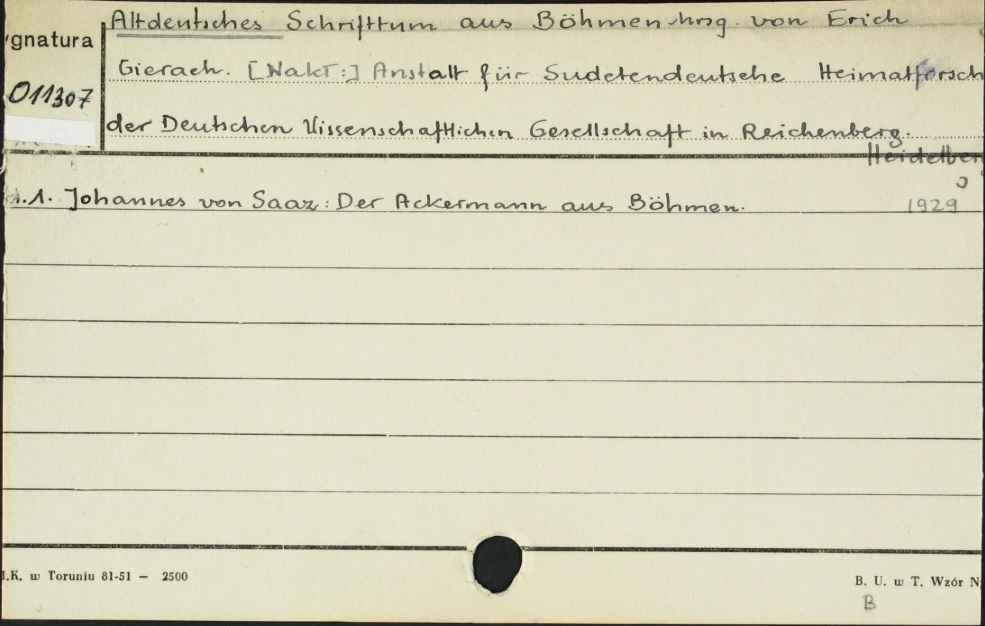 Altdeutsches Schrifttum aus Böhmen hrsg. von Erich
ygnatura
Gierach. [Nakł:] Anstalt für Sudetendeutsche Heimatforsch
011307
der Deutschen Wissenschaftlichen Gesellschaft in Reichenberg.
Heidelber
1. Johannes von Saaz: Der Ackermann aus Böhmen. 1929
.K. w Toruniu 81-51 — 2500
B. U. w T. Wzór N
B